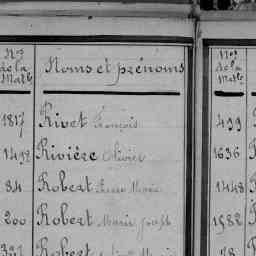 Nos de la Matle Noms et prénoms Nos de la Matle
1817 Rivet François 499
1492 Rivière Olivier 1636
84 Robert Pierre Marie 1448
200 Robert Marie Joseph 1582
Robert 78